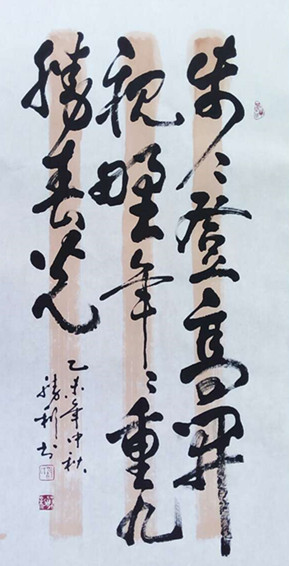 步々登高开
视野年々重九
胜春光
乙未年中秋
胜利书